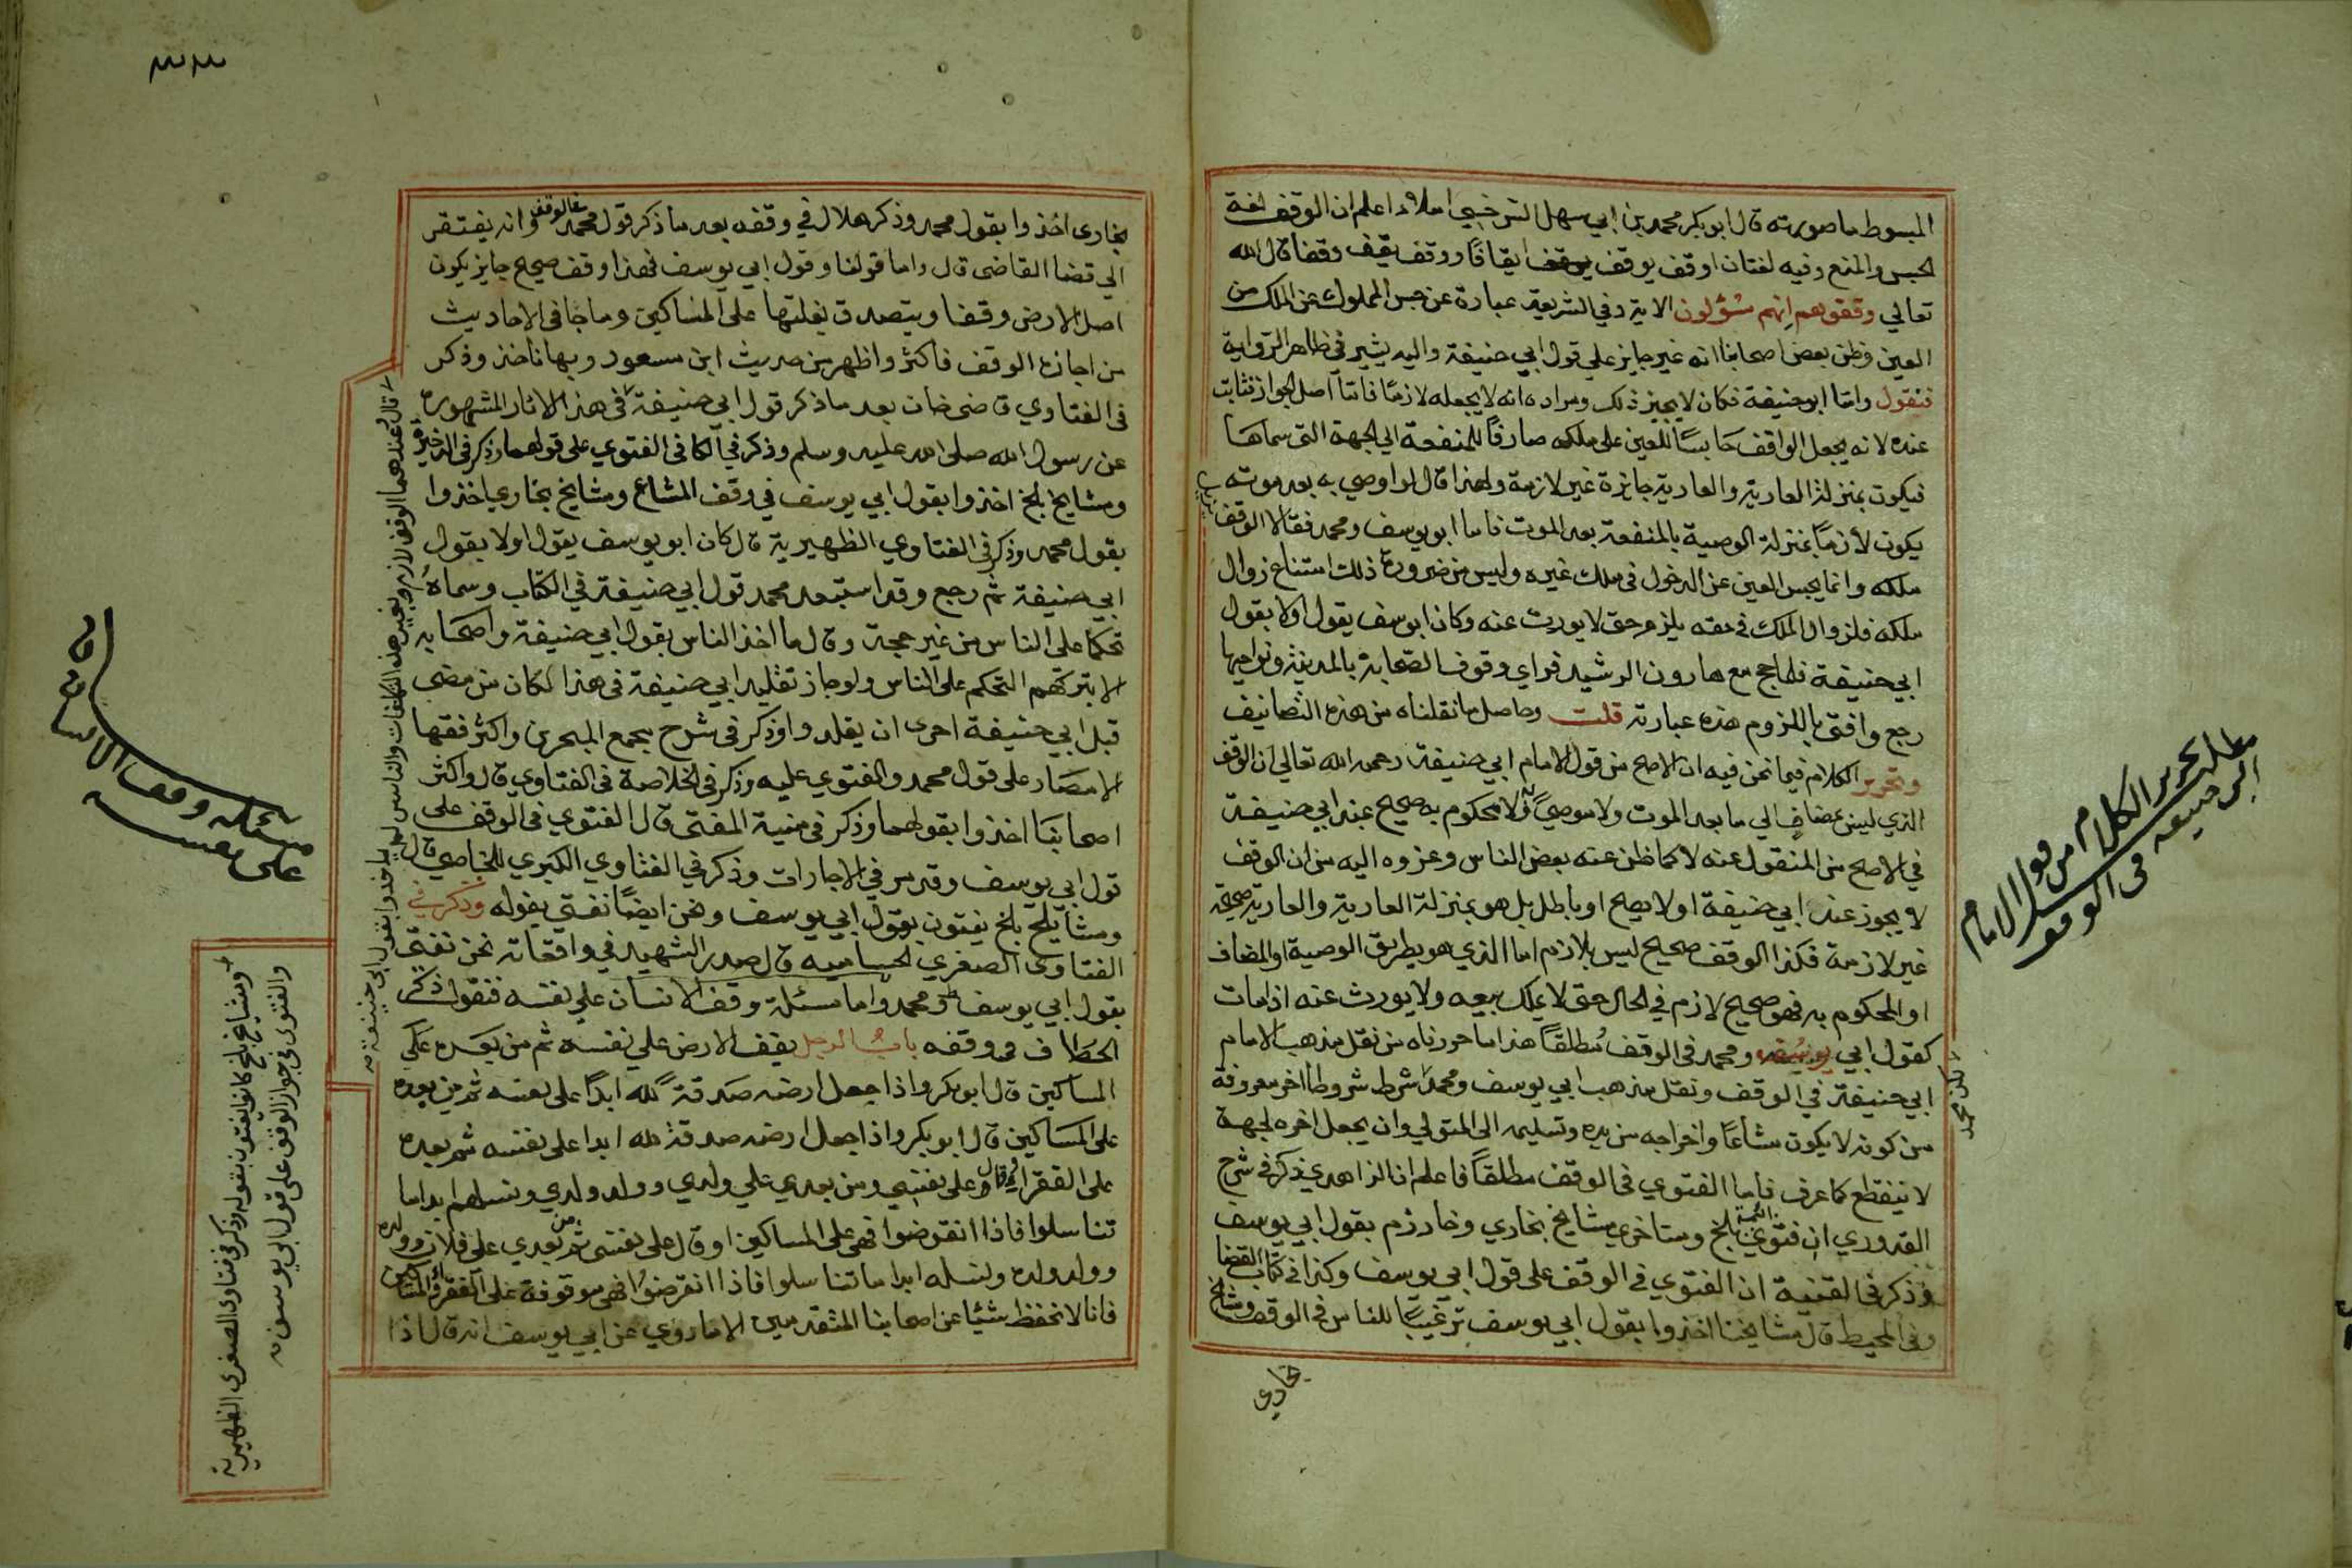 المبسوط ما صورته قال ابو بكر محمد بن ابي سهل السرخسي املاء اعلم ان الوقف لغة
الحبس والمنع وفيه لغتان اوقف يوقف ايقافا ووقف يقف وقفا قال الله
تعالي وقفوهم انهم مسؤلون الاية وفي الشريعة عبارة عن حبس المملوك عن الملك من
العين وظن بعض اصحابنا انه غير جايز علي قول ابي حنيفة واليه يشير في ظاهر الرواية
فنقول واما ابو حنيفة فكان لا يجيز ذلك ومراده انه لا يجعله لازما فاما اصل الجواز فثابت
عنده لانه يجعل الواقف حابسا للعين على ملكه صارفا للمنفعة الي الجهة التى سماها
فيكون بمنزلة العارية والعارية جايزة غير لازمة ولهذا قال لو اوصي به بعد موته
يكون لازما بمنزلة الوصية بالمنفعة بعد الموت فاما ابو يوسف ومحمد فقالا الوقف يزيل
ملكه وانما يحبس العين عن الدخول فى ملك غيره وليس من ضرورة ذلك امتناع زوال
ملكه فلزوال الملك في حقه يلزم حتى لا يورث عنه وكان ابو يوسف يقول اولا بقول
ابي حنيفة فلما حج مع هارون الرشيد فراي وقوف الصحابة بالمدينة ونواحيها
رجع وافتى باللزوم هذه عبارته قلت وحاصل ما نقلناه من هذه التصانيف
وتحرير الكلام فيما نحن فيه ان الاصح من قول الامام ابي حنيفة رحمه الله تعالي ان الوقف
الذي ليس بمضاف الي ما بعد الموت ولا موصي به ولا محكوم به صحيح عند ابي حنيفة
في الاصح من المنقول عنه لا كما ظن عنه بعض الناس وعزوه اليه من ان الوقف
لا يجوز عند ابي حنيفة او لا يصح او باطل بل هو بمنزلة العارية والعارية صحيحة
غير لازمة فكذا الوقف صحيح ليس بلازم اما الذي هو بطريق الوصية او المضاف
او المحكوم به فهو صحيح لازم في الحال حتى لا يملك بيعه ولا يورث عنه اذا مات
كقول ابي يوسف ومحمد فى الوقف مطلقا هذا ما حررناه من نقل مذهب الامام
ابي حنيفة في الوقف ونقل مذهب ابي يوسف ومحمد شرط شروطا اخر معروفة
من كونه لا يكون مشاعا واخراجه من يده وتسليمه الى المتولي وان يجعل اخره لجهة
لا تنقطع كما عرف فاما الفتوي فى الوقف مطلقا فاعلم ان الزاهدي ذكر فى شرح
القدوري ان فتوي ائمة بلخ ومتاخري مشايخ بخاري وخارزم بقول ابي يوسف
وذكر فى القنية ان الفتوي فى الوقف على قول ابي يوسف وكذا في كتاب القضا
وفى المحيط قال مشايخنا اخذوا بقول ابي يوسف ترغيبا للناس فى الوقف ومشايخ
بخاري
لكن محمد
مطلب تحرير الكلام من قول الامام
ابى حنيفه فى الوقف
بخارى اخذوا بقول محمد وذكر هلال في وقفه بعد ما ذكر قول محمد فى الوقف وانه يفتقر
الي قضا القاضى قال واما قولنا وقول ابي يوسف فهذا وقف صحيح جايز يكون
اصل الارض وقفا ويتصدق بغلتها على المساكين وما جا فى الاحاديث
من اجازة الوقف فاكثر واظهر من حديث ابن مسعود وبها ناخذ وذكر
فى الفتاوي قاضى خان بعد ما ذكر قول ابي حنيفة فى هذا الاثار المشهورة
عن رسول الله صلى الله عليه وسلم وذكر في الكافى الفتوي على قولهما وذكر فى الذخيرة
ومشايخ بلخ اخذوا بقول ابي يوسف في وقف المشاع ومشايخ بخاري اخذوا
بقول محمد وذكر فى الفتاوي الظهيرية قال كان ابو يوسف يقول اولا بقول
ابي حنيفة ثم رجع وقد استبعد محمد قول ابي حنيفة في الكتاب وسماه
تحكما على الناس من غير حجة وقال ما اخذ الناس بقول ابي حنيفة واصحابه
الا بتركهم التحكم على الناس ولو جاز تقليد ابي حنيفة فى هذا لكان من مضي
قبل ابي حنيفة احرى ان يقلدوا وذكر فى شرح مجمع البحرين واكثر فقها
الامصار على قول محمد والفتوي عليه وذكر فى الخلاصة فى الفتاوي قال واكثر
اصحابنا اخذوا بقولهما وذكر فى منية المفتى قال الفتوي فى الوقف على
قول ابي يوسف وقد مر في الاجارات وذكر في الفتاوي الكبري للخاصي قال
ومشايخ بلخ يفتون بقول ابي يوسف ونحن ايضا نفتي بقوله وذكر في
الفتاوى الصغري الحساميه قال صدر الشهيد في واقعاته نحن نفتى
بقول ابي يوسف ومحمد واما مسئلة وقف الانسان على نفسه فنقول ذكر
الخصاف فى وقفه باب الرجل يقف الارض علي نفسه ثم من بعده على
المساكين قال ابو بكر واذا جعل ارضه صدقة لله ابدا على نفسه ثم من بعده
على المساكين قال ابو بكر واذا جعل ارضه صدقة لله ابدا على نفسه ثم بعده
على الفقرا او قال على نفسي ومن بعدي علي ولدي وولد ولدي ونسلهم ابدا ما
تناسلوا فاذا انقرضوا فهى على المساكين او قال على نفسى ثم من بعدي على فلان وولده
وولد ولده ونسله ابدا ما تناسلوا فاذا انقرضوا فهى موقوفة على الفقرا والمساكين
فانا لا نحفظ شيئا عن اصحابنا المتقدمين الا ما روي عن ابي يوسف انه قال اذا
قال وعندهما الوقف لازم وبغير هذه التكلفات والناس لم ياخذوا بقول ابى حنيفة
ومشايخ بلخ كانوا يفتون بقوله وذكر فى فتاوى الصغرى الظهيرية
والفتوى فى جواز الوقف على قول ابى يوسف
مسئلة وقف الانسان
على نفسه